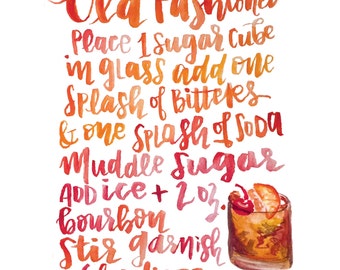 Old Fashioned
Place 1 Sugar Cube
in glass add one
Splash of Bitters
& one Splash of Soda
Muddle Sugar
ADD ice + 2 oz.
bourbon
Stir garnish